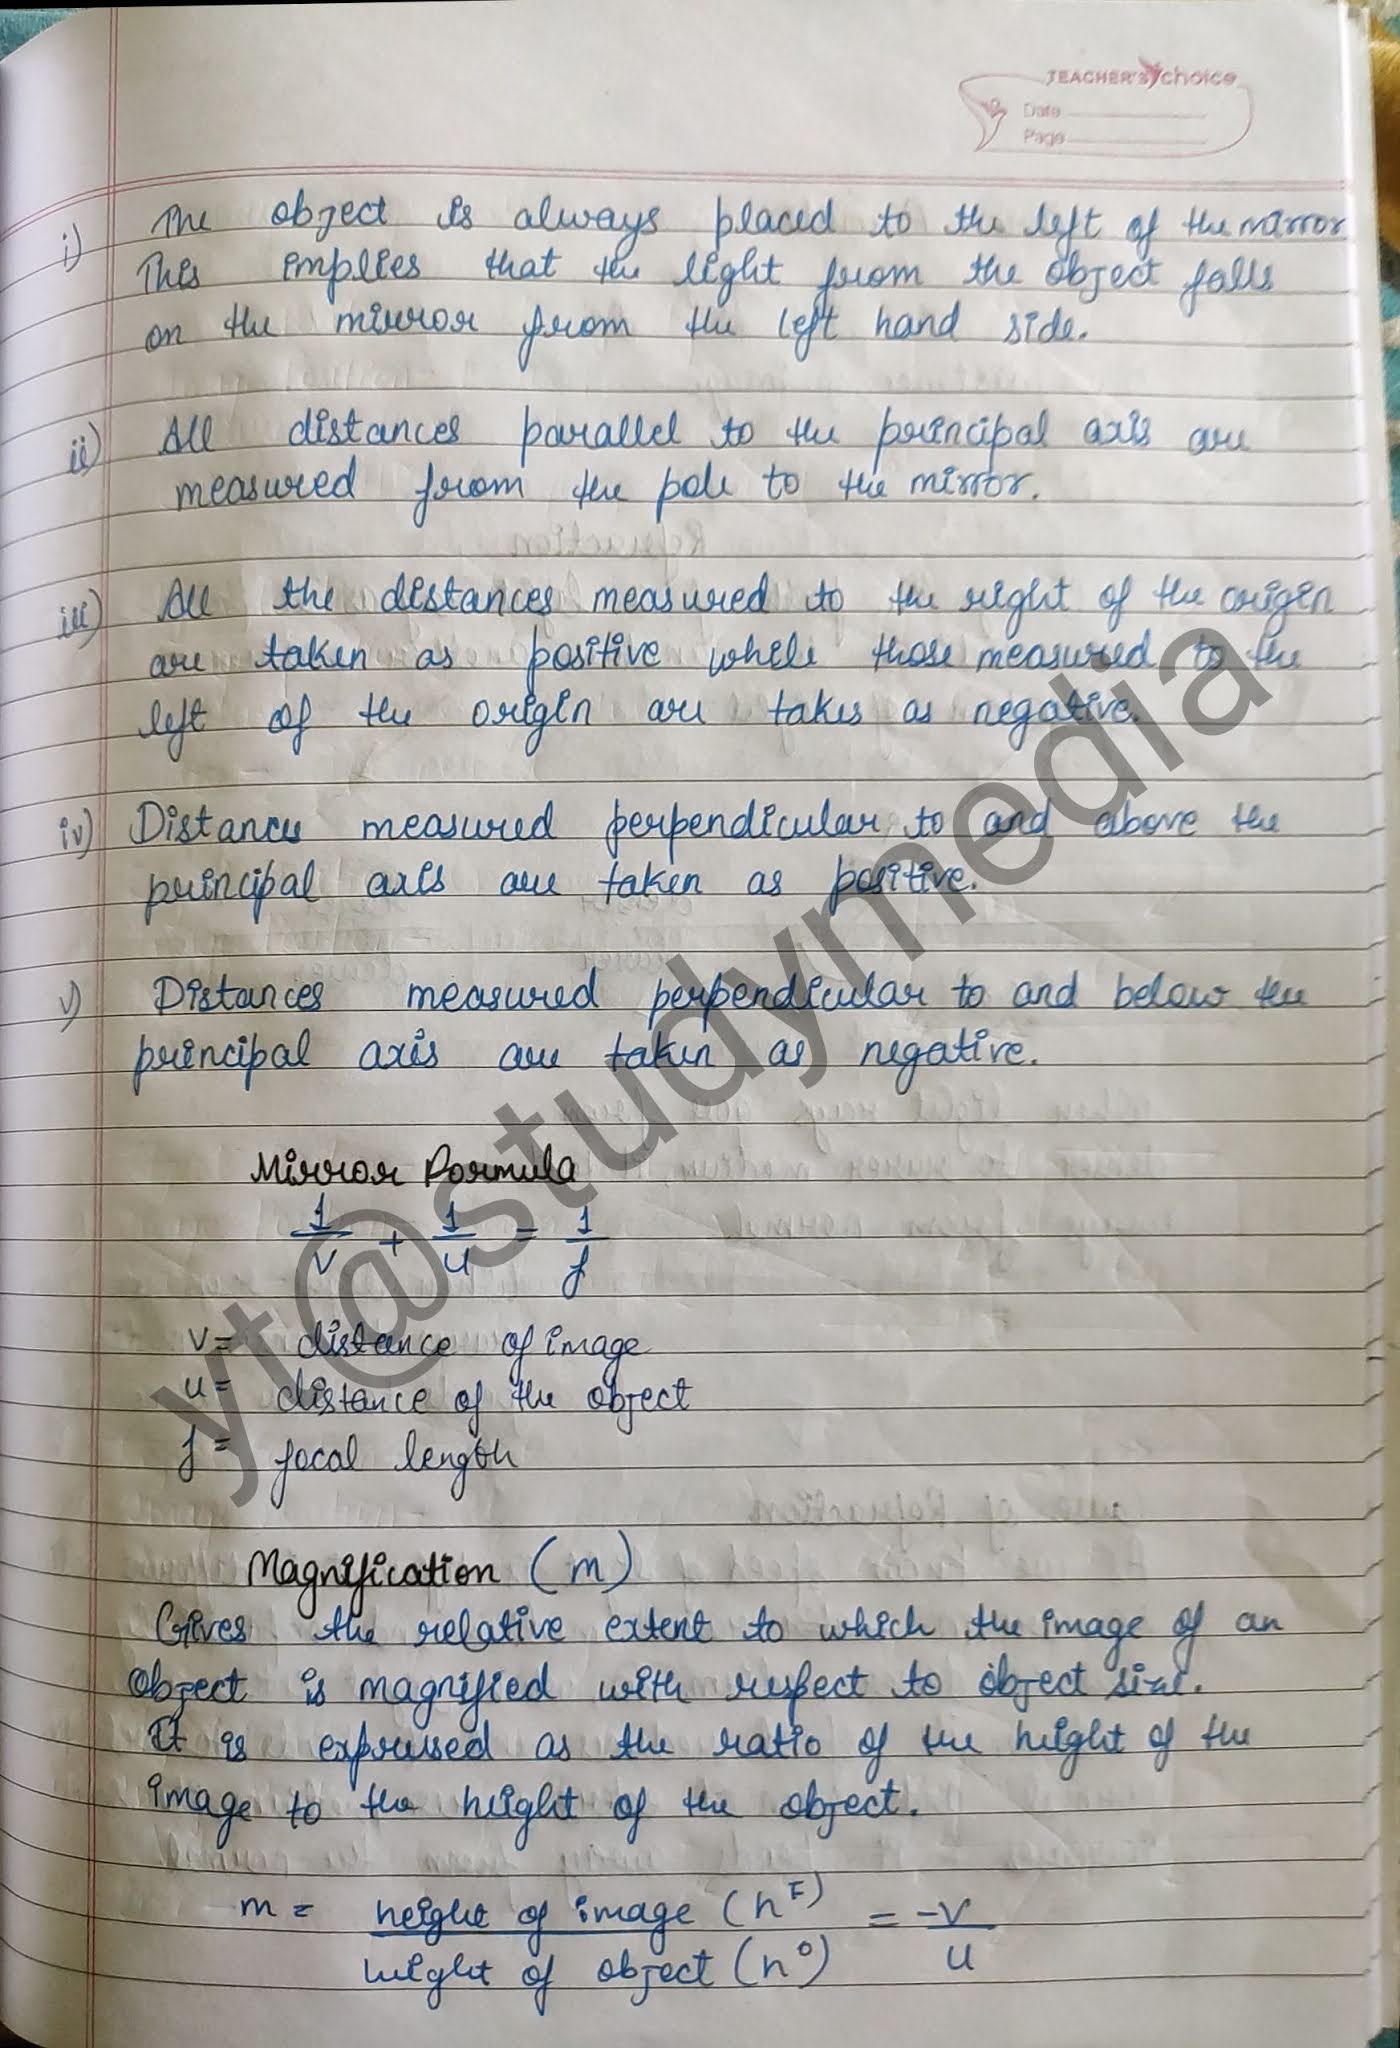 TEACHER'S choice
Date
Page
i) The object is always placed to the left of the mirror
This implies that the light from the object falls
on the mirror from the left hand side.
ii) All distances parallel to the principal axis are
measured from the pole to the mirror.
iii) All the distances measured to the right of the origin
are taken as positive while those measured to the
left of the origin are takes as negative.
iv) Distances measured perpendicular to and above the
principal axis are taken as positive.
v) Distances measured perpendicular to and below the
principal axis are taken as negative.
Mirror Formula
1/v + 1/u = 1/f
v = distance of image
u = distance of the object
f = focal length
Magnification (m)
Gives the relative extent to which the image of an
object is magnified with respect to object size.
It is expressed as the ratio of the height of the
image to the height of the object.
m = height of image (h^I) / height of object (h^o) = -v/u
yt@studymedia